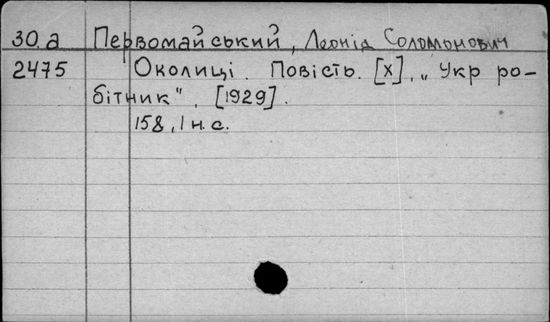 30.а Первомайський, Леонід Соломонович
2475 Околиці. Повість. [Х], „Укр ро-
бітник", [1929].
158, 1 н.с.